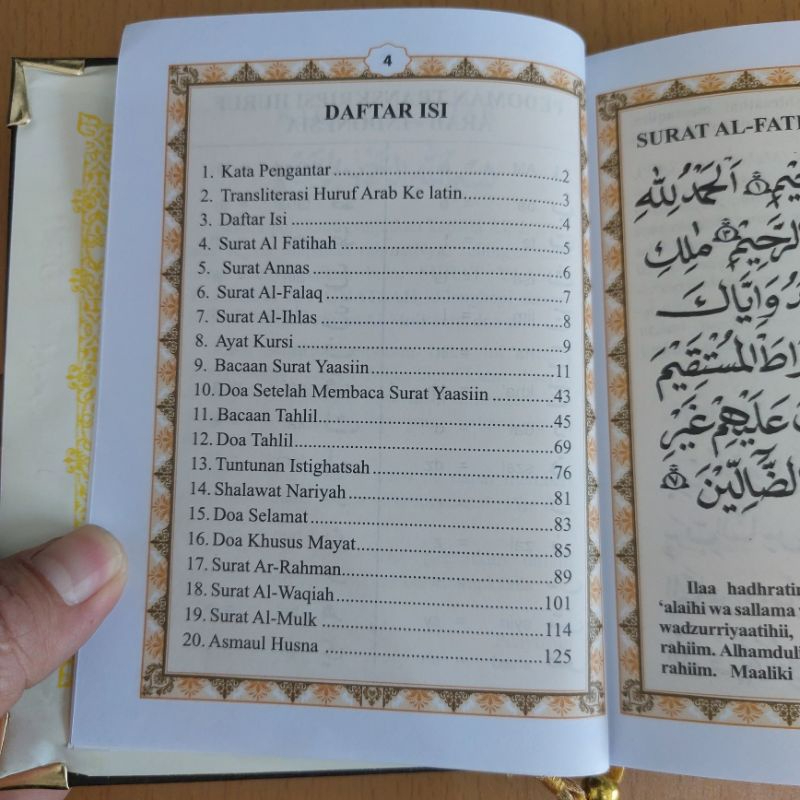 4
DAFTAR ISI
1. Kata Pengantar.....2
2. Transliterasi Huruf Arab Ke latin.....3
3. Daftar Isi.....4
4. Surat Al Fatihah.....5
5. Surat Annas.....6
6. Surat Al-Falaq.....7
7. Surat Al-Ihlas.....8
8. Ayat Kursi.....9
9. Bacaan Surat Yaasiin.....11
10. Doa Setelah Membaca Surat Yaasiin.....43
11. Bacaan Tahlil.....45
12. Doa Tahlil.....69
13. Tuntunan Istighatsah.....76
14. Shalawat Nariyah.....81
15. Doa Selamat.....83
16. Doa Khusus Mayat.....85
17. Surat Ar-Rahman.....89
18. Surat Al-Waqiah.....101
19. Surat Al-Mulk.....114
20. Asmaul Husna.....125
SURAT AL-FATI
١ اَلْحَمْدُ لِلّٰهِ
الرَّحِيْمِ ٣ مٰلِكِ
وَاِيَّاكَ
الْمُسْتَقِيْمَ
عَلَيْهِمْ غَيْرِ
الضَّاۤلِّيْنَ ٧
Ilaa hadhratin
'alaihi wa sallama
wadzurriyaatihii,
rahiim. Alhamduli
rahiim. Maaliki